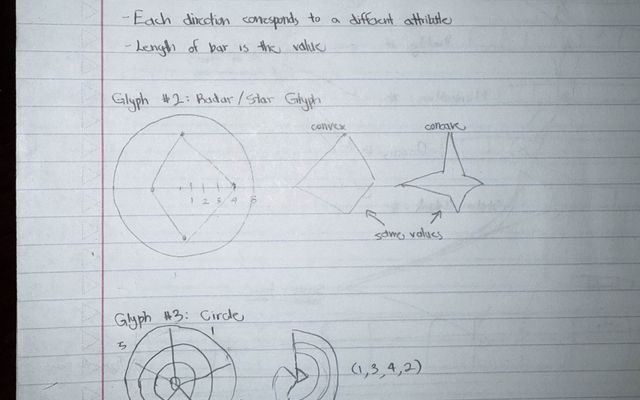 - Each direction corresponds to a different attribute
- Length of bar is the value
Glyph #2: Radar/Star Glyph
convex concave
1 2 3 4 5
same values
Glyph #3: Circle
5 1
(1,3,4,2)